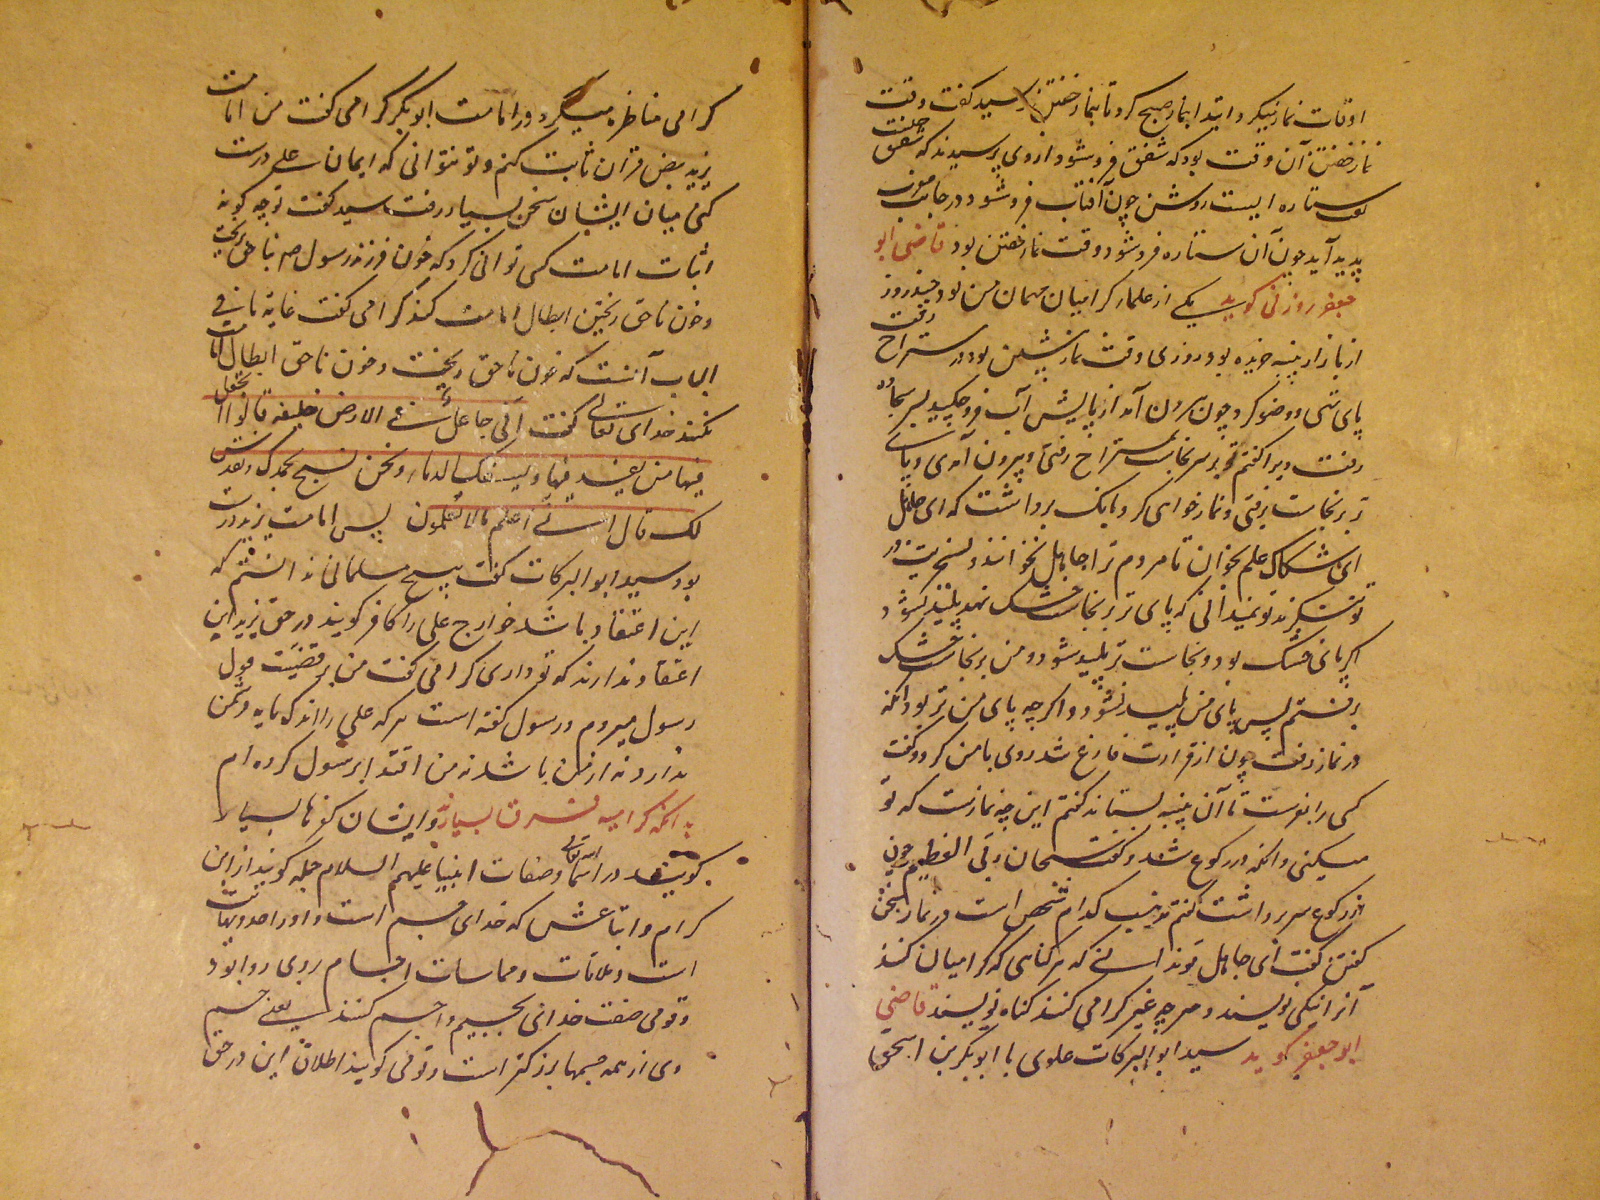 اوقات نماز نیکرد ابتدا بنماز صبح کرد تا بنماز خفتن رسید گفت وقت
نماز خفتن آن وقت بود که شفق فرو شود از وی پرسیدند که شفق چیست
گفت ستاره ایست روشن چون آفتاب فرو شود در جانب مغرب
پدید آید چون آن ستاره فرو شود وقت نماز خفتن بود قاضی ابو
جعفر روزنی کوید یکے از علماء کرامیان مهمان من بود چند روز
از بازار پنبه خریده بود روزی وقت نماز پیشین بود در مستراح رفت
پای تهی و وضو کرد چون بیرون آمد از پایش آب فرو چکید بر سجاده
رفت ویرا گفتم تو بر سر نجاست بمستراح رفتی و بیرون آمدی و پای
تر بر نجاست برفتی و نماز خواهی کرد بانگ برداشت که ای جاهل
ای علم بخوان تا مردم ترا جاهل نخوانند و سخریت در
تو نکنند تو نمیدانی که پای تر بر نجاست خشک نهد پلید نشود
اگر پای خشک بود و نجاست تر پلید شود و من بر نجاست خشک
برفتم پس پای من پلید نشود و اگرچه پای من تر بود آنکه
در نماز رفت چون از قراءت فارغ شد روی با من کرد و گفت
کسی را بفرست تا آن پنبه بستاند گفتم این چه نمازست که تو
میکنی و آنکه در رکوع شد و گفت سبحان ربی العظیم چون
از رکوع سر برداشت گفتم مذهب کدام شخص است در نماز سخن
گفتن گفت ای جاهل تو ندانسته که هر گناهی که کرامیان کنند
آنرا نیکی نویسند و هر چه غیر کرامی کند گناه نویسند قاضی
ابو جعفر کوید سید ابوالبرکات علوی با ابوبکر بن اسحق
کرامی مناظره میکرد در امامت ابوبکر کرامی گفت من امامت
یزید بنص قرآن ثابت کنم و تو نتوانی که ایمان علی درست
کنی میان ایشان سخن بسیار رفت سید گفت تو چه گونه
اثبات امامت کسی توانی کرد که خون فرزند رسول صم بناحق بریخت
و خون ناحق ریختن ابطال امامت کند کرامی گفت غایة ما فی
الباب آنست که خون ناحق ریخت و خون ناحق ابطال امامت
نکند خدای تعالی گفت انی جاعل فی الارض خلیفه قالوا اتجعل
فیها من یفسد فیها و یسفک الدماء و نحن نسبح بحمدک و نقدس
لک قال انی اعلم مالا تعلمون پس امامت یزید درست
بود سید ابوالبرکات گفت هیچ مسلمانی ندانستم که
این اعتقاد باشد خوارج علی را کافر کویند در حق یزید این
اعتقاد ندارند که تو داری کرامی گفت من بر قضیت قول
رسول میروم و رسول گفته است هر که علی را اندک مایه دشمن
ندارد نه از من باشد نه من اقتدا برسول کرده ام
بدانکه کرامیه فرق بسیارند و ایشان کفرها بسیار
کویند در اسماء تعالی و صفات انبیا علیهم السلام جمله کویند از ابن
کرام و اتباعش که خدای جسم است و او را حد و نهایت
است و ملاقات و مماسات اجسام بروی روا بود
و قومی صفت خدای بجسم و اجسم کنند یعنی جسم
وی از همه جسمها بزرکتر است و قومی کویند اطلاق این در حق